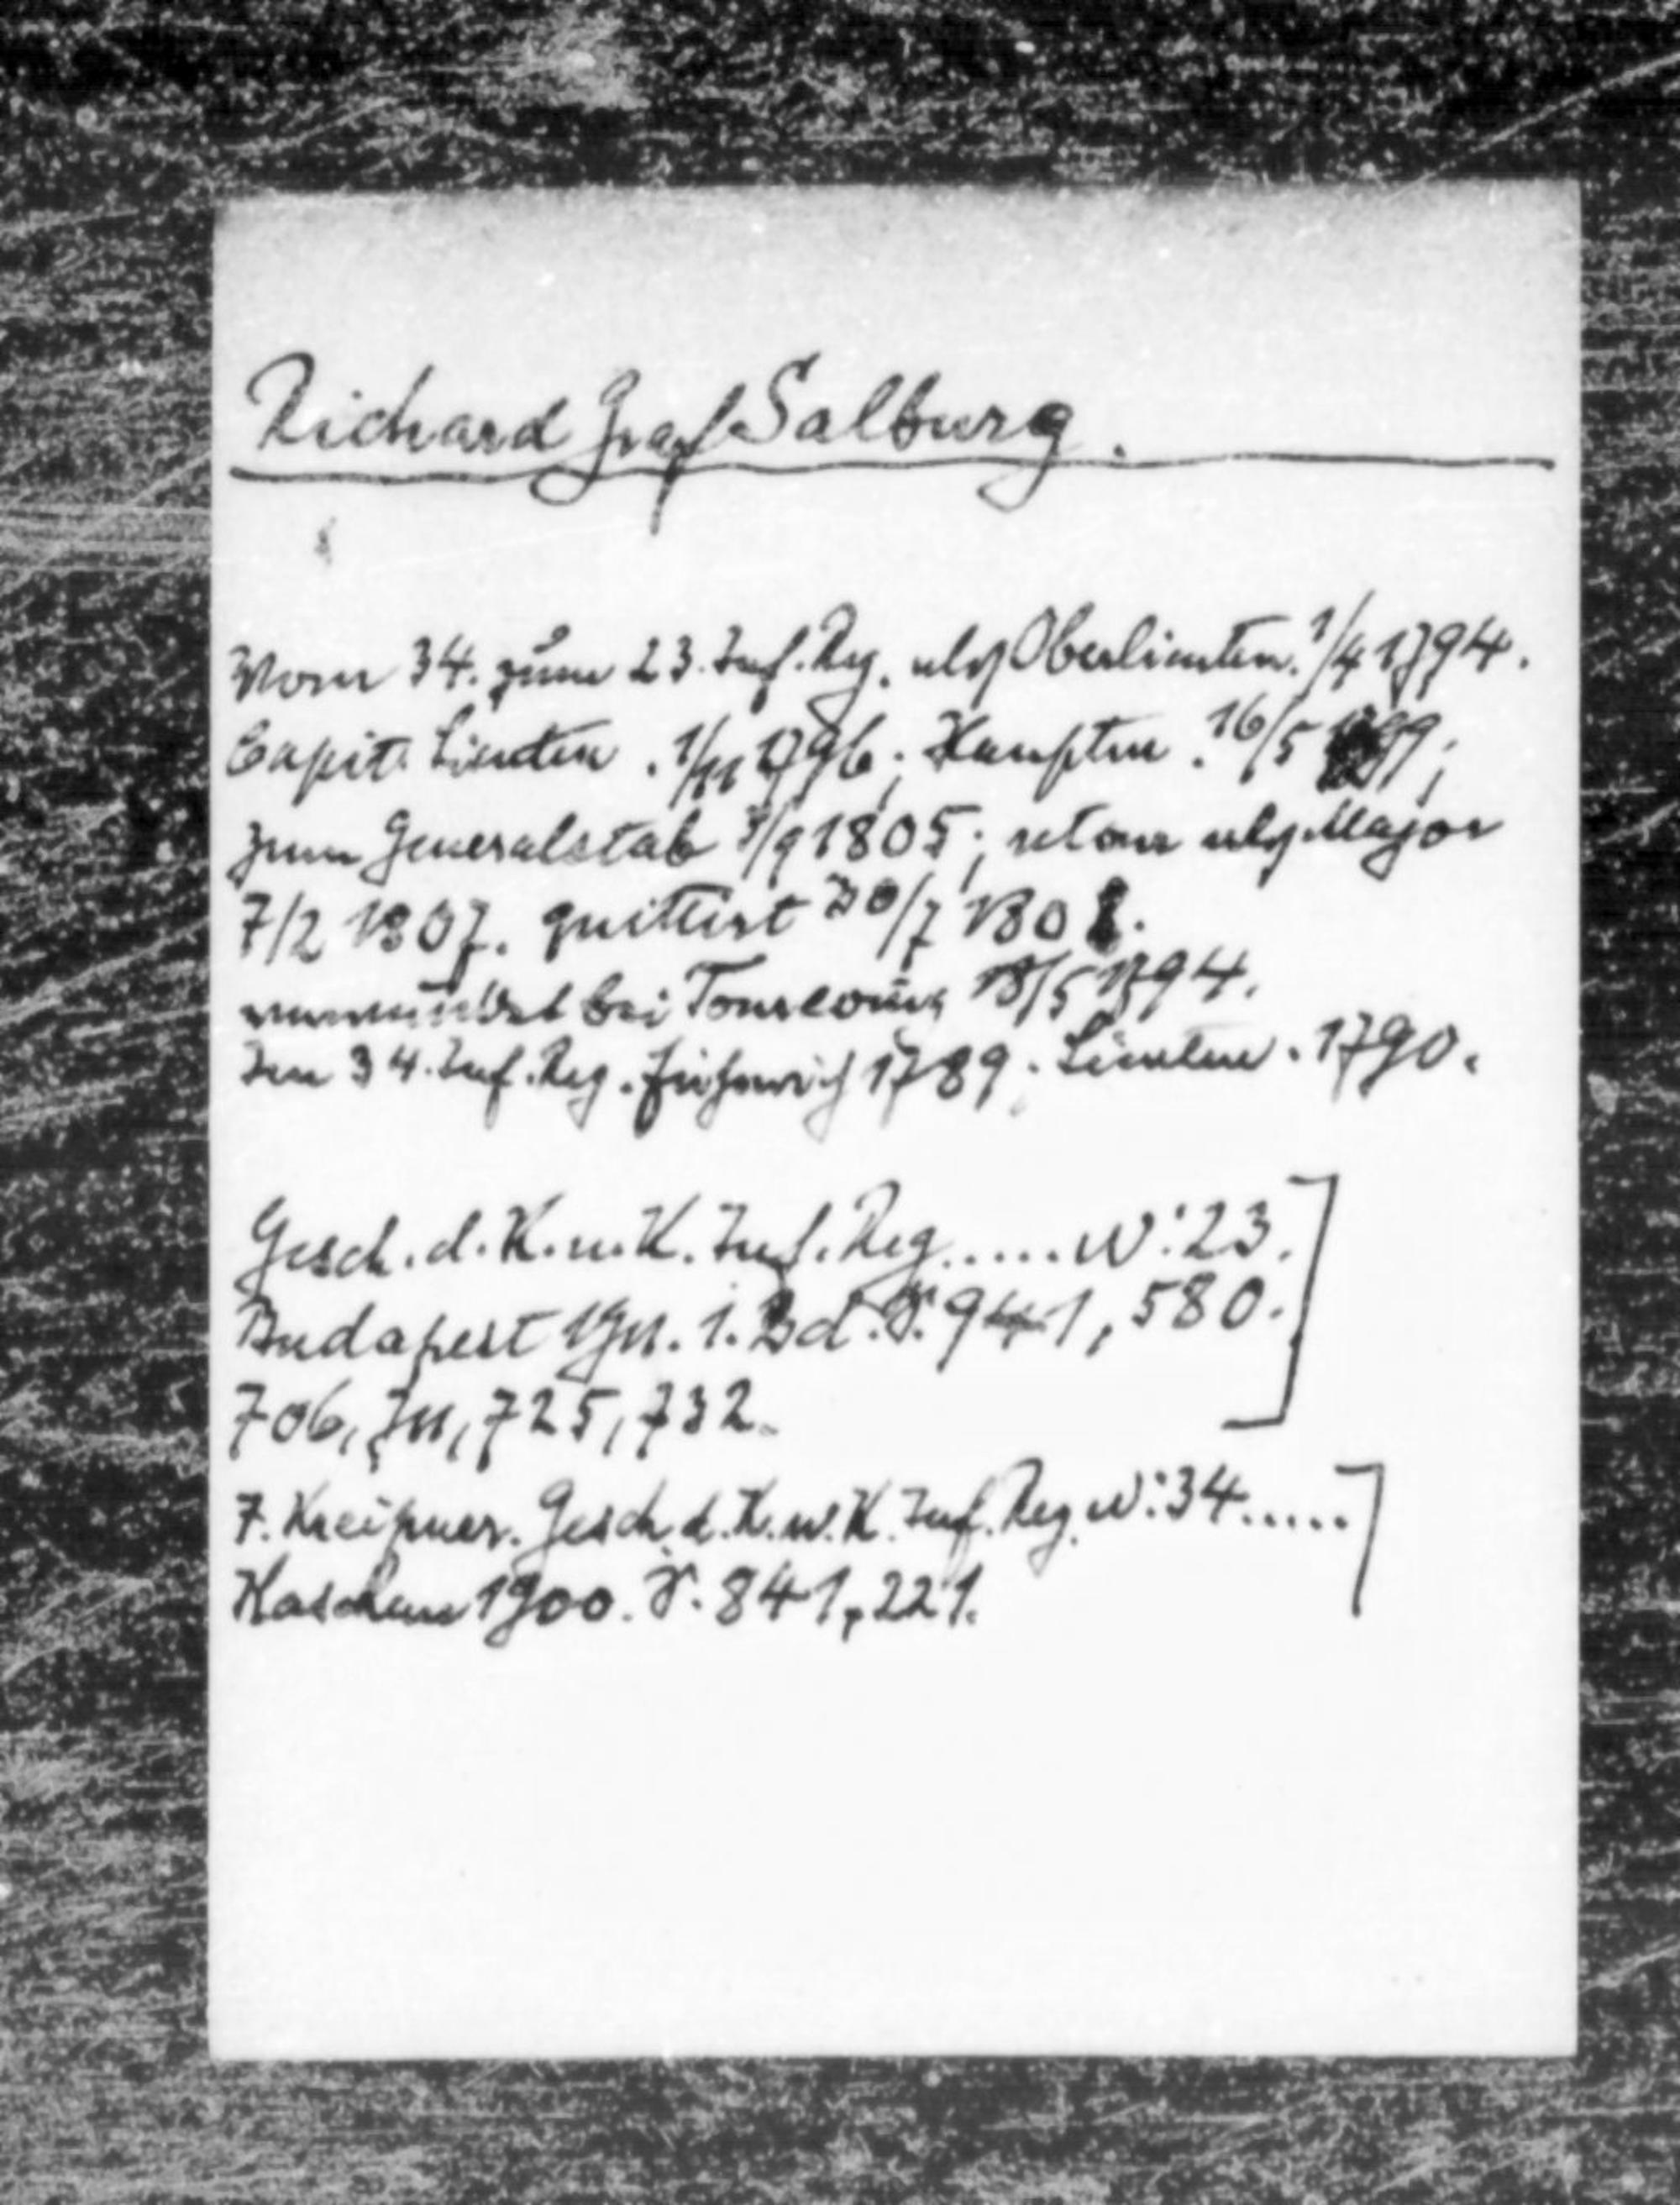 Richard Graf Salburg.
Vom 34. zum 23. Inf. Reg. als Oberlieuten. 1/4 1794.
Capit. Lieuten. 1/11 1796; Hauptm. 16/5 1799;
zum Generalstab 3/9 1805; retour als Major
7/2 1807. quittirt 30/7 1808.
verwundet bei Tourcoing 18/5 1794.
Im 34. Inf. Reg. Fähnrich 1789. Lieuten. 1790.
Gesch. d. K. u. K. Inf. Reg ..... N: 23.
Budapest 1911. 1. Bd. S. 941, 580.
706, 711, 725, 732.
F. Kreipner. Gesch. d. K. u. K. Inf. Reg. N: 34 .....
Kaschau 1900. S. 841, 221.